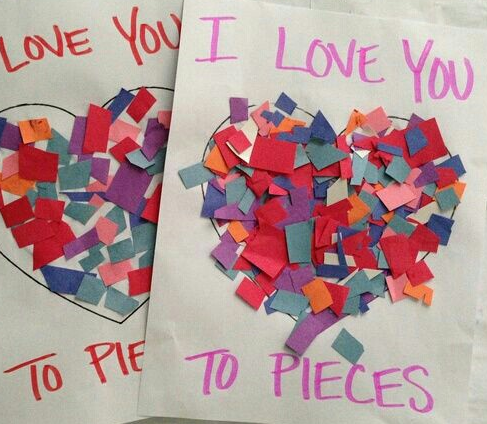 LOVE YOU
TO PIE
I LOVE YOU
TO PIECES